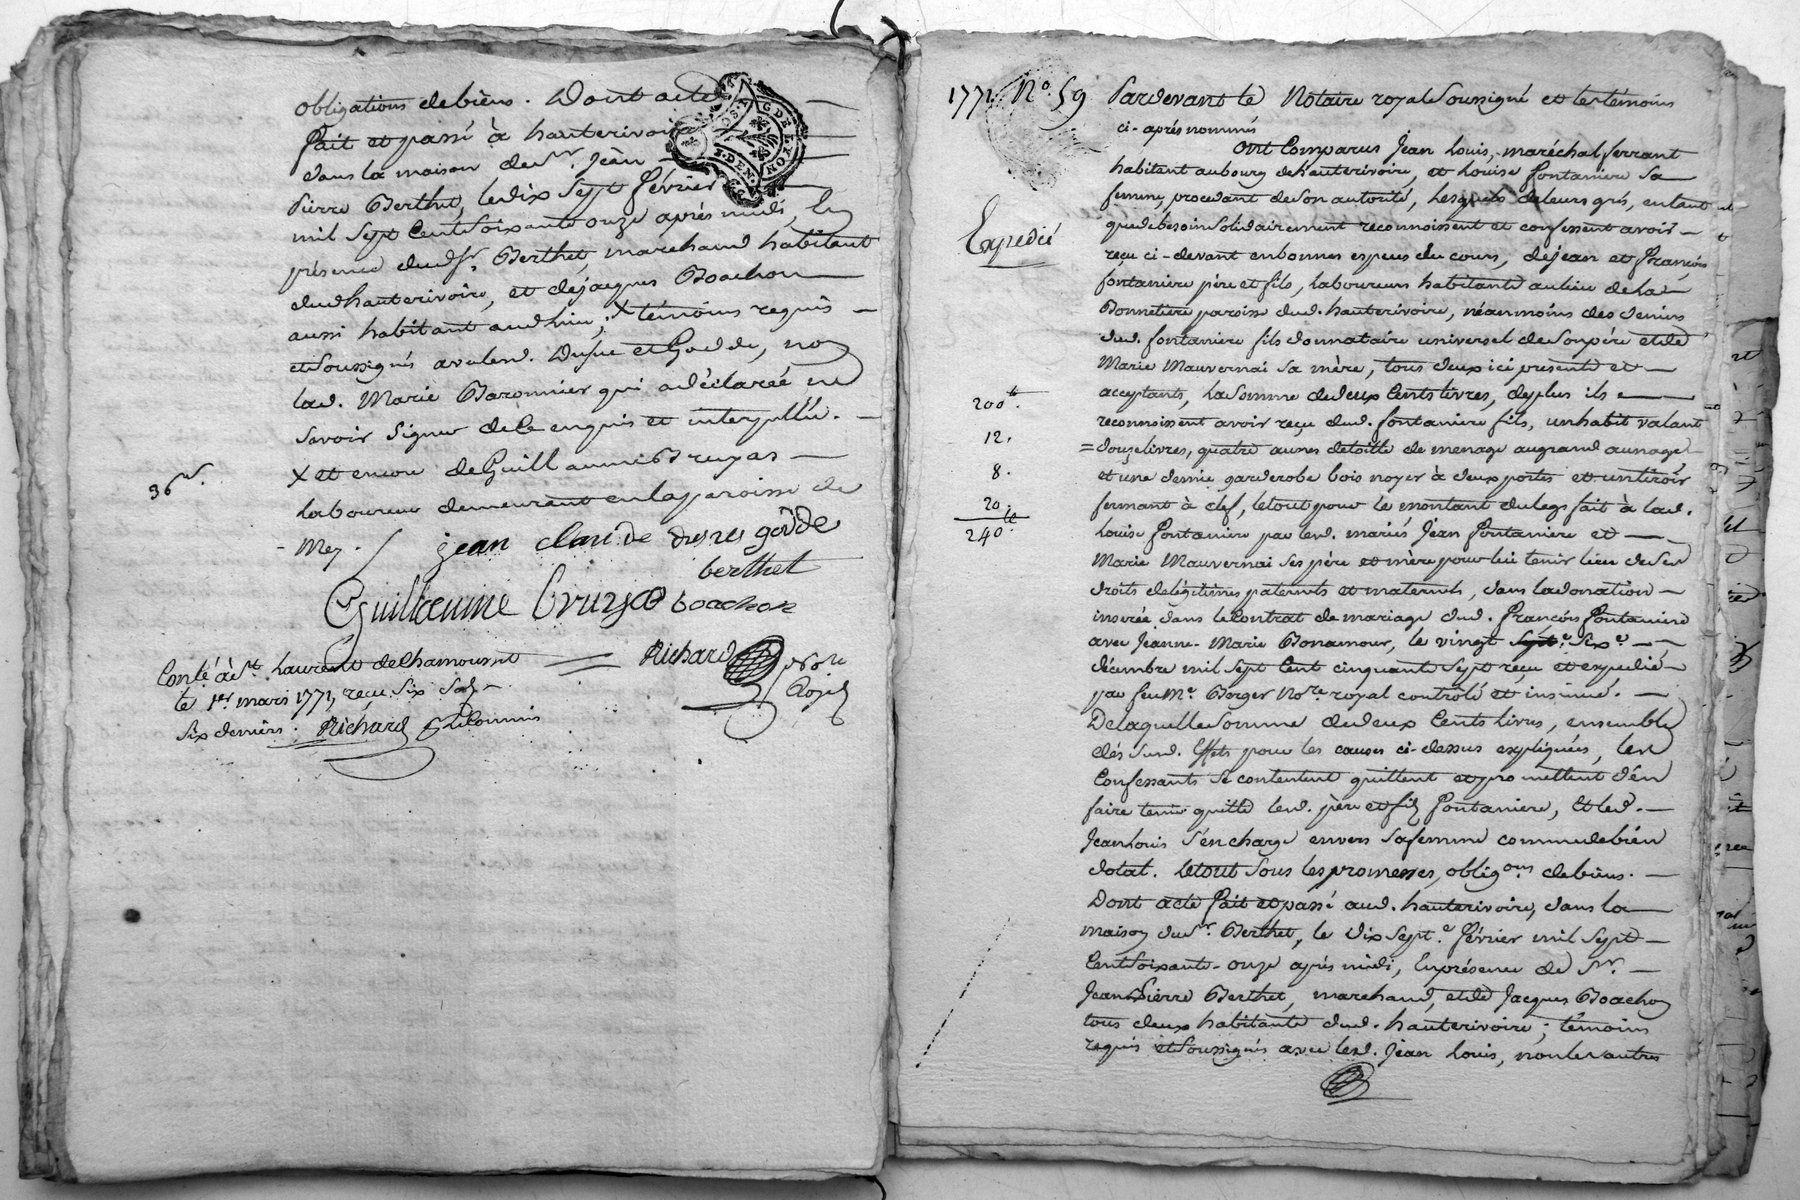 obligations de biens. Dont acte
fait et passé à hauterivoire
dans la maison de Sr. Jean
Pierre Berthet, le dix sept février
mil sept cent soixante onze après midi, en
présence dud. Sr. Berthet, marchand habitant
dud. hauterivoire, et de jacques Boachon
aussi habitant aud. lieu; X témoins requis
et soussignés avec led. et Godde, non
lad. Marie Baronnier qui a déclarée ne
savoir signer de ce enquis et interpellée.
X et encore de Guillaume Bruyas
laboureur demeurant en la paroisse de
36 s.
Mey. jean claude godde
berthet
Guillaume bruyas boachon
Richard
Conlé à St. Laurent de Chamousset
le 1er mars 1771, reçu six sols
six deniers. Richard
G DE LYON
2.DEN.
1771 No. 59 Pardevant le Notaire royal soussigné et les témoins
ci-après nommés
ont Comparus Jean Louis, maréchal ferrant
habitant au bourg de hauterivoire, et Louise fontaniere sa
femme, procedant de son autorité, Lesquels de leurs grés, en tant
Expedié
que de besoin solidairement reconnoissent et confessent avoir
reçu ci-devant en bonnes especes du cours, de jean et François
fontaniere père et fils, laboureurs habitants au lieu de la
Bonnetiere paroisse dud. hauterivoire, néanmoins des deniers
dud. fontaniere fils donnataire universel de son père et de
Marie Mauvernai sa mère, tous deux ici présents et
200 lt.
acceptants, la somme de deux cents livres, de plus ils
reconnoissent avoir reçu dud. fontaniere fils, un habit valant
12.
= douze livres, quatre aunes de toille de menage au grand aunage
8.
et une demie garderobe bois noyer à deux portes et un tiroir
20.
fermant à clef, le tout pour le montant du legs fait à lad.
240 lt
Louise Fontaniere par led. mariés Jean Fontaniere et
Marie Mauvernai ses père et mère pour lui tenir lieu de ses
droits de légitimes paternels et maternels, dans la donation
inserée dans le Contrat de mariage dud. François Fontaniere
avec Jeanne-Marie Bonamour, le vingt sept.e six.e
décembre mil sept cent cinquante sept reçu et expedié
par feu Me. Borger Nore royal controlé et insinué.
De laquelle somme de deux Cents livres, ensemble
des sud. effets pour les causes ci-dessus expliquées, les
Confessants se contentent quittent et promettent d'en
faire tenir quitte lesd. père et fils Fontaniere, Et led.
Jean Louis s'en charge envers sa femme comme de bien
dotal. Le tout sous les promesses, obligons de biens.
Dont acte fait et passé aud. hauterivoire, dans la
maison du Sr. Berthet, le dix sept.e février mil sept
cent soixante-onze après midi, En présence de Sr.
Jean Pierre Berthet, marchand, et de Jacques Boachon
tous deux habitants dud. hauterivoire; témoins
requis et soussignés avec led. Jean Louis, non les autres